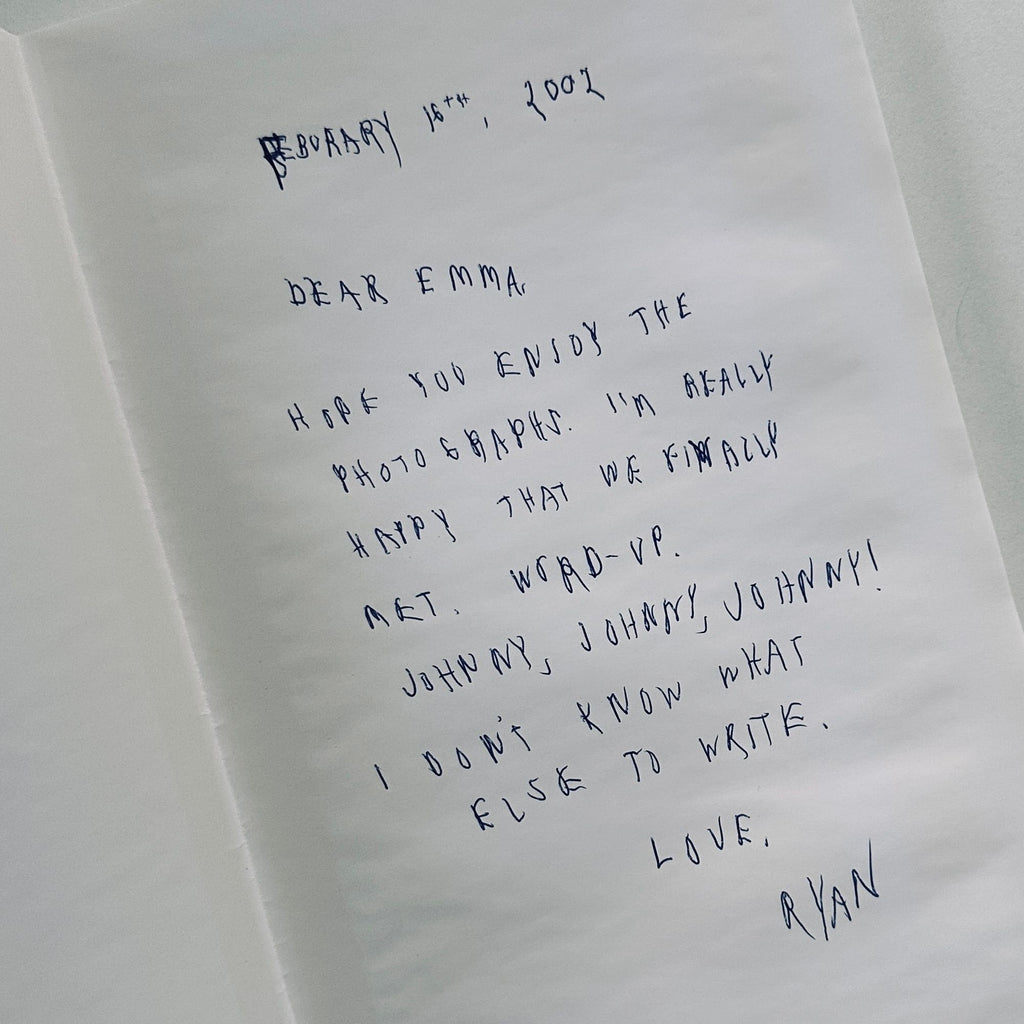 FEBURARY 16TH, 2002
DEAR EMMA,
HOPE YOU ENJOY THE
PHOTOGRAPHS. I'M REALLY
HAPPY THAT WE FINALLY
MET. WORD-UP.
JOHNNY, JOHNNY, JOHNNY!
I DON'T KNOW WHAT
ELSE TO WRITE.
LOVE,
RYAN